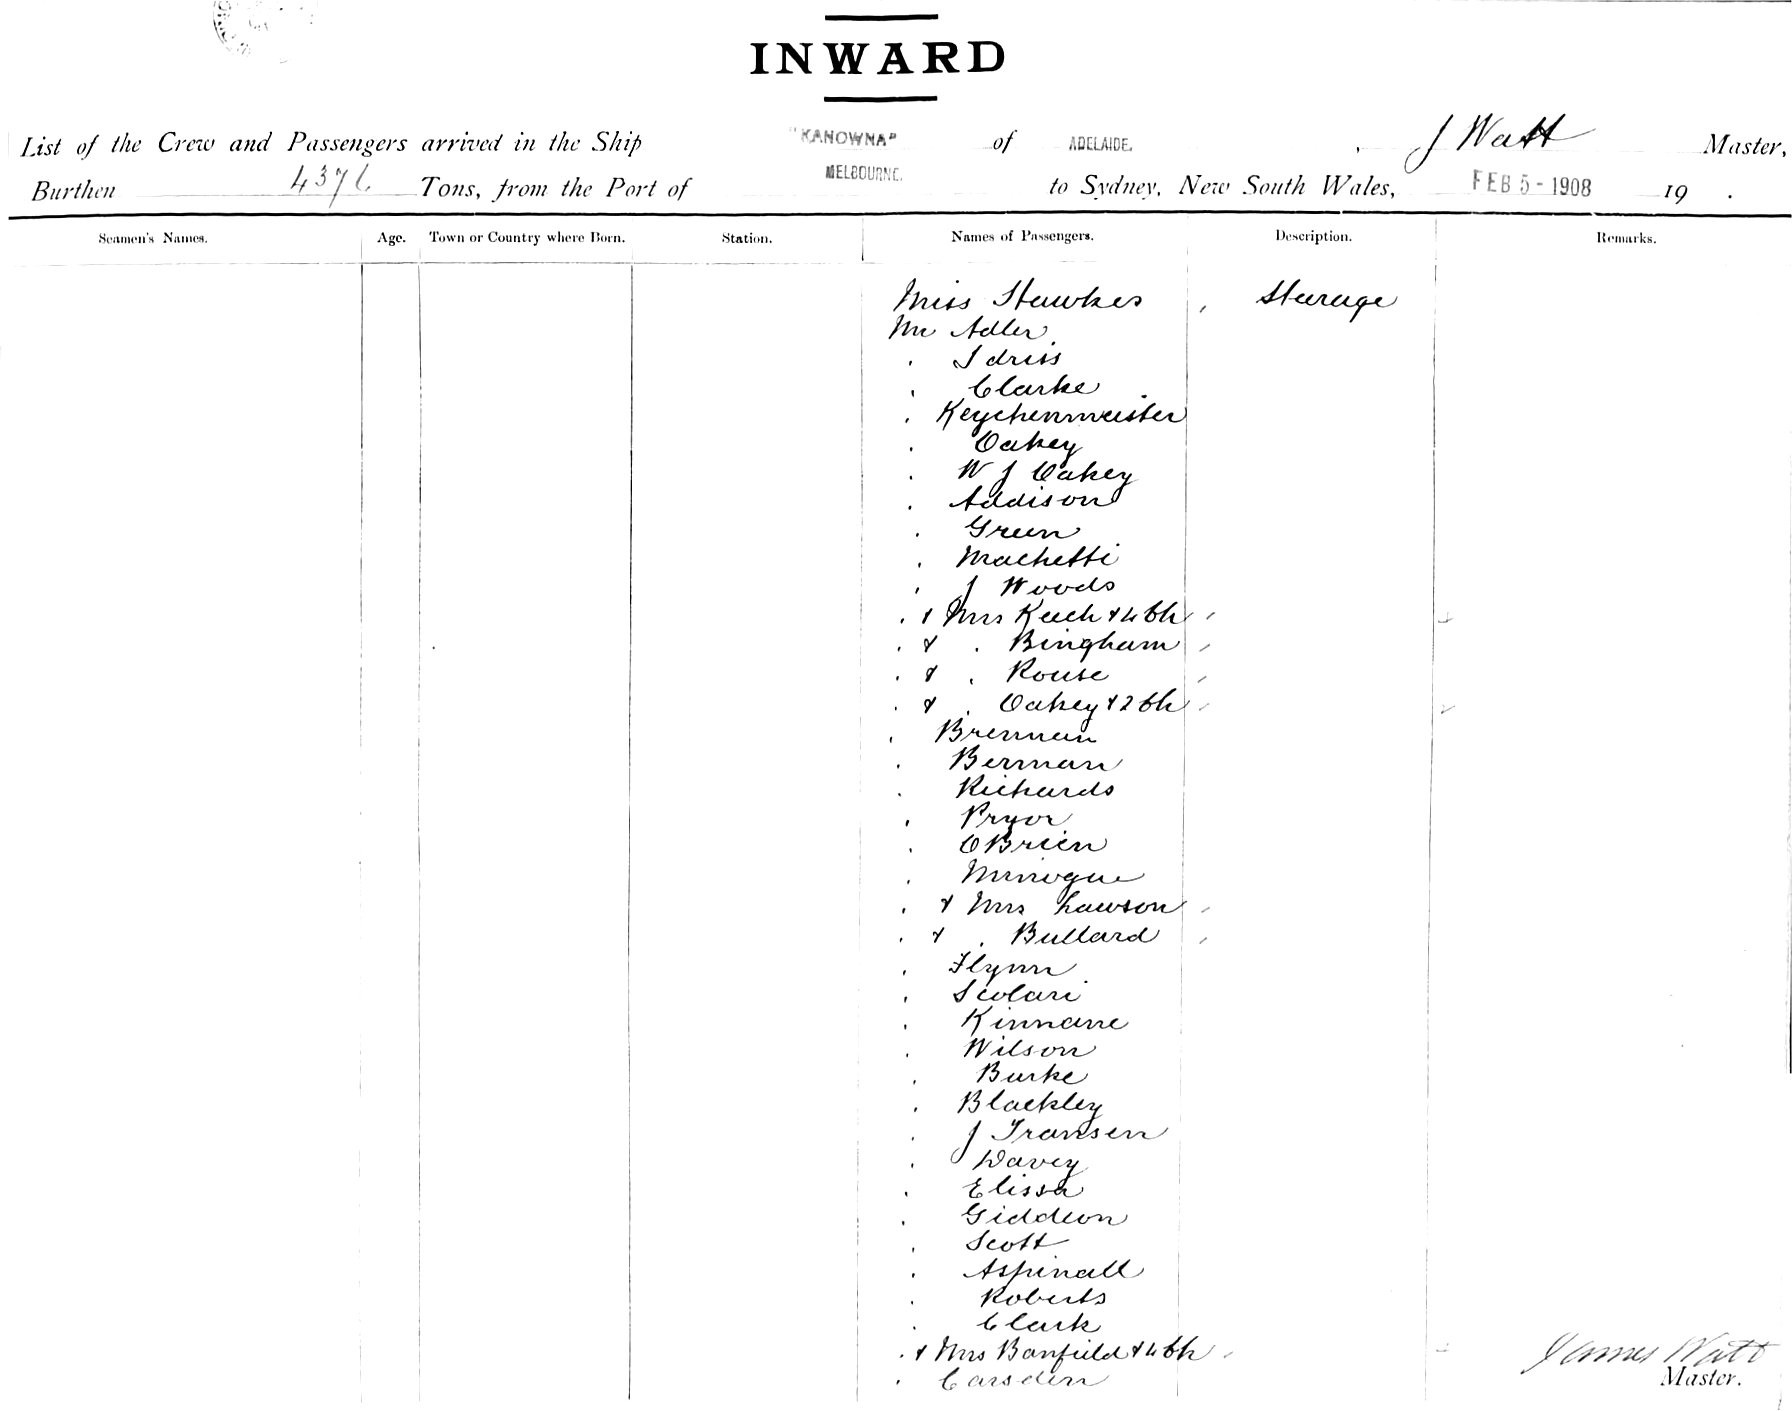 INWARD
List of the Crew and Passengers arrived in the Ship "KANOWNA" of ADELAIDE. , J Watt Master,
Burthen 4376 Tons, from the Port of MELBOURNE. to Sydney, New South Wales, FEB 5 - 1908 19 .
Seamen's Names. Age. Town or Country where Born. Station. Names of Passengers. Description. Remarks.
Miss Hawkes , Steerage
Mr Adler
. Idriss
. Clarke
. Keychenmeister
. Oakey
. W J Oakey
. Addison
. Green
. Machetti
. J Woods
. & Mrs Keech & 4 Ch
. & . Bingham
. & . Rouse
. & . Oakey & 2 Ch
. Brennan
. Berman
. Richards
. Pryor
. OBrien
. Minogue
. & Mrs Lawson
. & . Bullard
. Flynn
. Scolari
. Kinnane
. Wilson
. Burke
. Blackley
. J Fransen
. Davey
. Elissa
. Giddeon
. Scott
. Aspinall
. Roberts
. Clark
. & Mrs Banfield & 4 Ch
. Carsden
James Watt
Master.